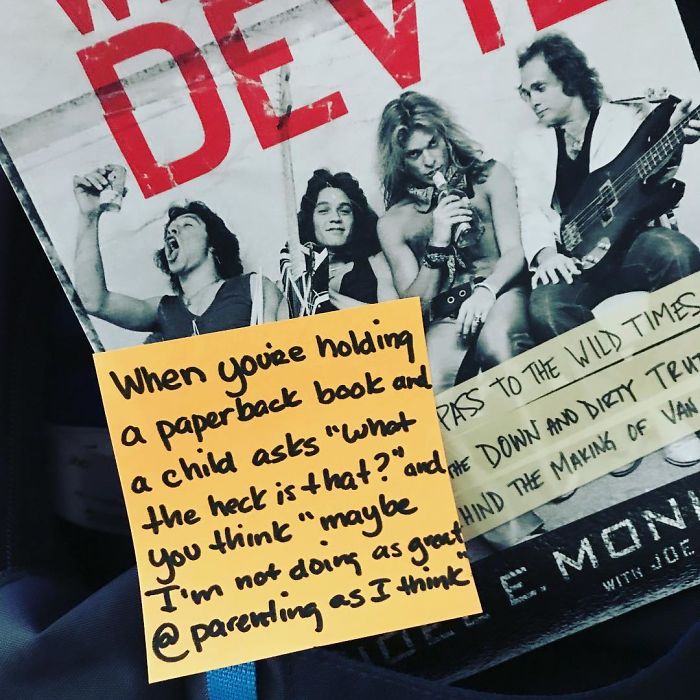 DEVIL
PASS TO THE WILD TIMES
THE DOWN AND DIRTY TRUT
HIND THE MAKING OF VAN
NOEL E. MONK
WITH JOE
When you're holding
a paperback book and
a child asks "what
the heck is that?" and
you think "maybe
I'm not doing as great
@ parenting as I think"